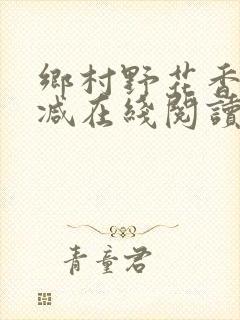 鄉村野花香
減在綫閱讀
青童君